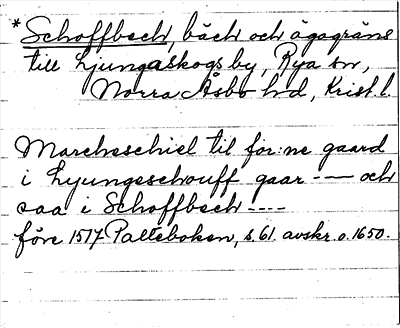 *Schoffbech, bäck och ägogräns
till Ljungaskogs by, Rya sn,
Norra Åsbo hd, Krist l.
Marcheschiel til for:ne gaard
i Lyungeschouff gaar --- och
saa i Schoffbech ----
före 1517 Palteboken, s. 61. avskr. o. 1650.